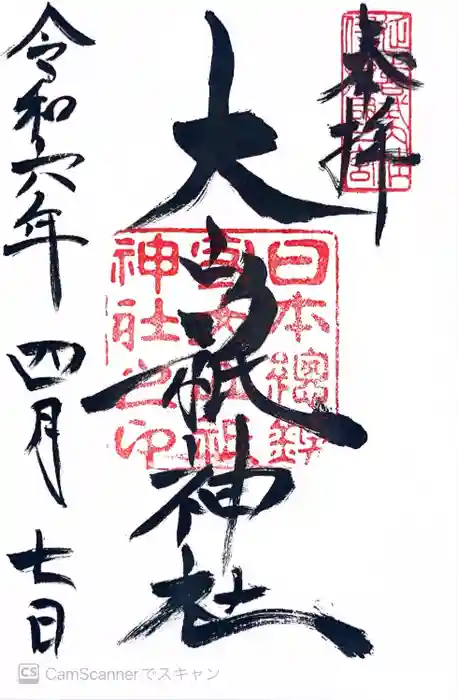 奉拝
大山祇神社
日本總鎮守大山祇
神社之印
令和六年 四月 七日
CS CamScannerでスキャン